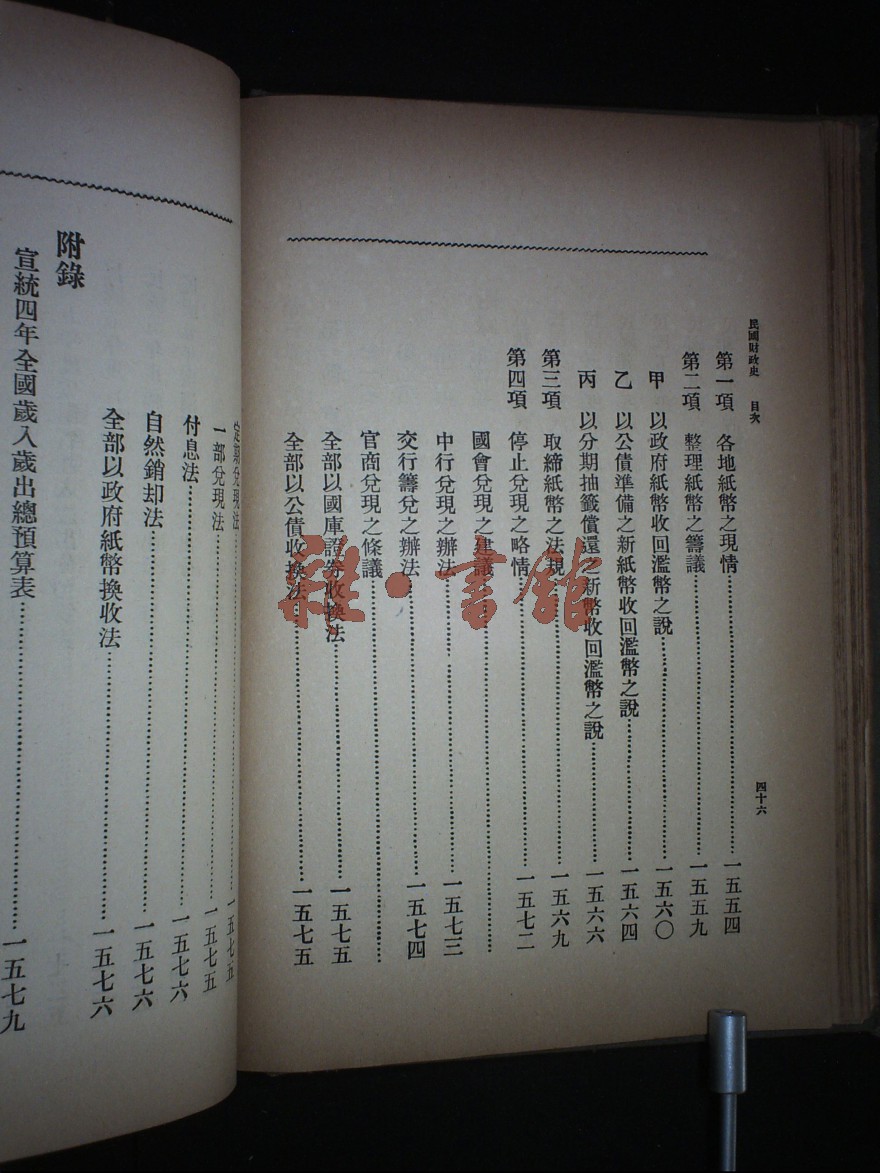 民國財政史　目次
四十六
第一項　各地紙幣之現情…………一五五四
第二項　整理紙幣之籌議…………一五五九
甲　以政府紙幣收回濫幣之說…………一五六〇
乙　以公債準備之新紙幣收回濫幣之說…………一五六四
丙　以分期抽籤償還之新幣收回濫幣之說…………一五六六
第三項　取締紙幣之法規…………一五六九
第四項　停止兌現之略情…………一五七二
國會兌現之建議…………
中行兌現之辦法…………一五七三
交行籌兌之辦法…………一五七四
官商兌現之條議…………
全部以國庫證券收換法…………一五七五
全部以公債收換法…………一五七五
定期兌現法…………一五七五
一部兌現法…………一五七五
付息法…………一五七六
自然銷却法…………一五七六
全部以政府紙幣換收法…………一五七六
附錄
宣統四年全國歲入歲出總預算表…………一五七九
雜·書館